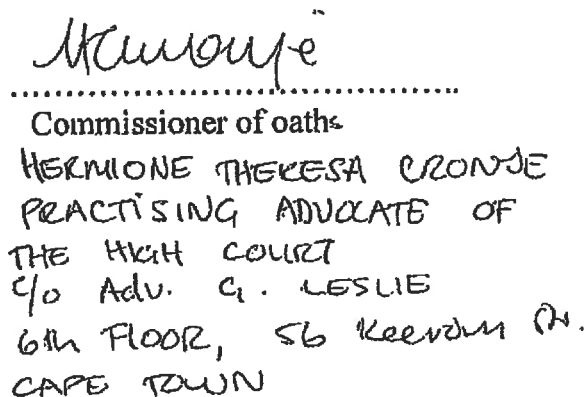 Commissioner of oaths
HERMIONE THERESA CRONJE
PRACTISING ADVOCATE OF
THE HIGH COURT
c/o Adv. G. LESLIE
6th FLOOR, 56 Keerom Str.
CAPE TOWN